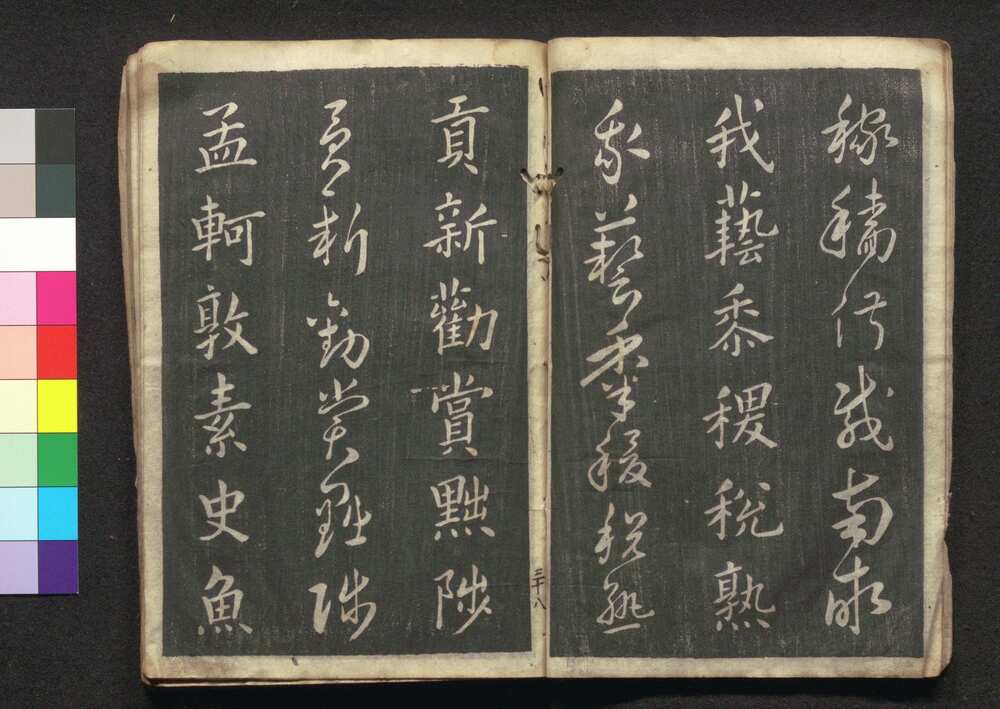 稼穡俶載南畝
我藝黍稷稅熟
我藝黍稷稅熟
三十八
貢新勸賞黜陟
貢新勸賞黜陟
孟軻敦素史魚